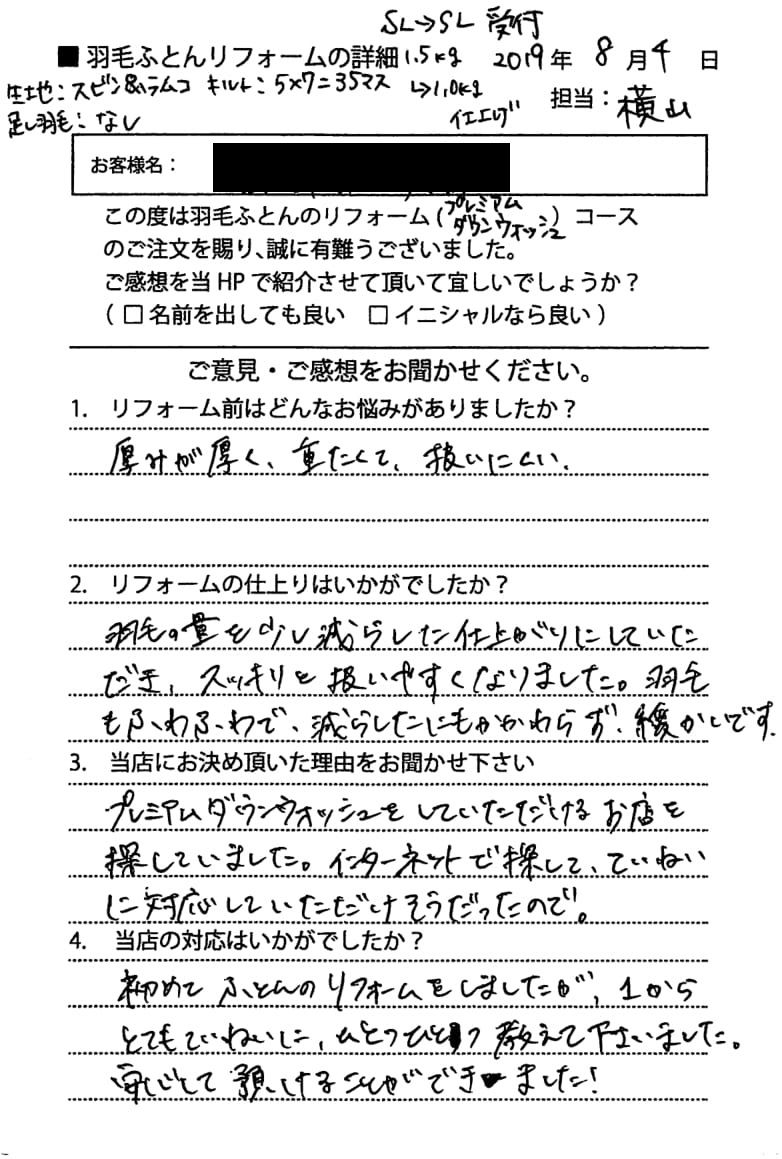 SL→SL 受付
■ 羽毛ふとんリフォームの詳細 1.5kg 2019年 8月4日
生地:スピン&ラムコ キルト:5×7=35マス ↳1.0kg
担当:横山
足し羽毛:なし
イエロゲ
お客様名:
この度は羽毛ふとんのリフォーム(プレミアムダウンウォッシュ)コース
のご注文を賜り、誠に有難うございました。
ご感想を当HPで紹介させて頂いて宜しいでしょうか?
(□名前を出しても良い □イニシャルなら良い)
ご意見・ご感想をお聞かせください。
1. リフォーム前はどんなお悩みがありましたか?
厚みが厚く、重たくて、扱いにくい.
2. リフォームの仕上りはいかがでしたか?
羽毛の量を少し減らした仕上がりにしていた
だき、スッキリと扱いやすくなりました。羽毛
もふわふわで、減らしたにもかかわらず、暖かいです.
3. 当店にお決め頂いた理由をお聞かせ下さい
プレミアムダウンウォッシュをしていただけるお店を
探していました。インターネットで探して、ていねい
に対応していただけそうだったので。
4. 当店の対応はいかがでしたか?
初めてふとんのリフォームをしましたが、1から
とてもていねいに、ひとつひとつ教えて下さいました。
安心して預けることができました!